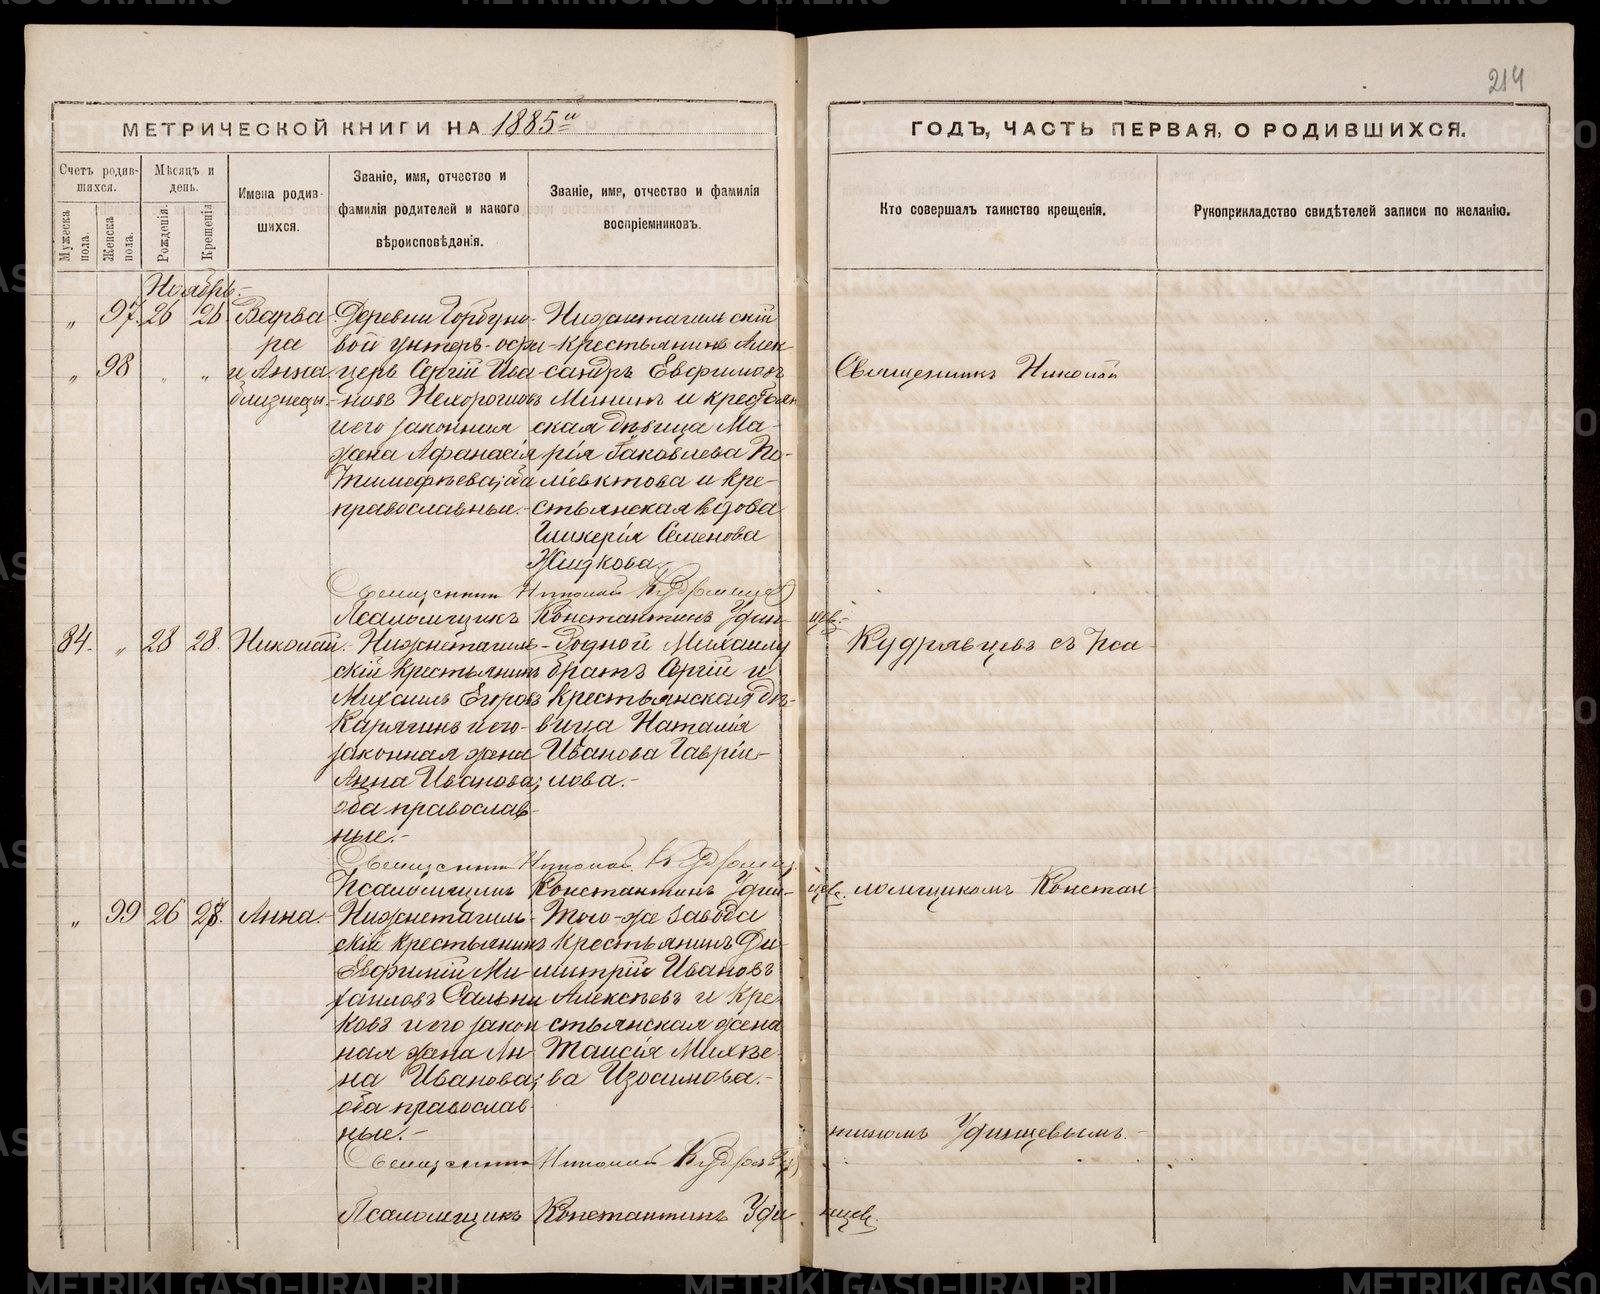 214
МЕТРИЧЕСКОЙ КНИГИ НА 1885й
ГОДЪ, ЧАСТЬ ПЕРВАЯ, О РОДИВШИХСЯ.
Счетъ родив-
шихся.
Мужеска
пола.
Женска
пола.
Мѣсяцъ и
день.
Рожденія.
Крещенія
Имена родив-
шихся.
Званіе, имя, отчество и
фамилія родителей и какого
вѣроисповѣданія.
Званіе, имя, отчество и фамилія
воспріемниковъ.
Кто совершалъ таинство крещенія.
Рукоприкладство свидѣтелей записи по желанію.
Ноябрь.-
„ 97. 26 26 Варва-
ра
„ 98 „ „ и Анна
близнецы.-
Деревни Горбуно-
вой унтеръ-офи-
церъ Сергій Ива-
новъ Нехорошковъ
и его законная
жена Афанасія
Тимофѣева; оба
православные.-
Нижнетагильскій
крестьянинъ Алек-
сандръ Евфимовъ
Мининъ и крестьян
ская дѣвица Ма-
рія Іаковлева По-
ліевктова и кре-
стьянская вдова
Гликерія Семенова
Жидкова.-
Священникъ Николай Кудрявцев
Псаломщикъ Константинъ Удин-
цев.-
84. „ 28 28 Николай.-
Нижнетагиль-
скій крестьянинъ
Михаилъ Егоровъ
Карягинъ и его
законная жена
Анна Иванова;
оба православ-
ные.-
Родной Михаилу
братъ Сергій и
крестьянская дѣ-
вица Наталія
Иванова Гаврии-
лова.-
Священникъ Николай Кудрявц
Псаломщикъ Константинъ Удин-
цев.
„ 99 26 28. Анна.-
Нижнетагиль-
скій крестьянинъ
Евфимій Ми-
хаиловъ Сальни
ковъ и его закон
ная жена Ан-
на Иванова;
оба православ-
ные.-
Того-же завода
крестьянинъ Ди-
митрій Ивановъ
Алексѣевъ и кре-
стьянская жена
Таисія Михѣе-
ва Изосимова.-
Священникъ Николай Кудрявцев
Псаломщикъ Константинъ Уди-
нцев.
Священникъ Николай
Кудрявцевъ съ Пса
ломщикомъ Констан
тиномъ Удинцевымъ.-
METRIKI.GASO-URAL.RU